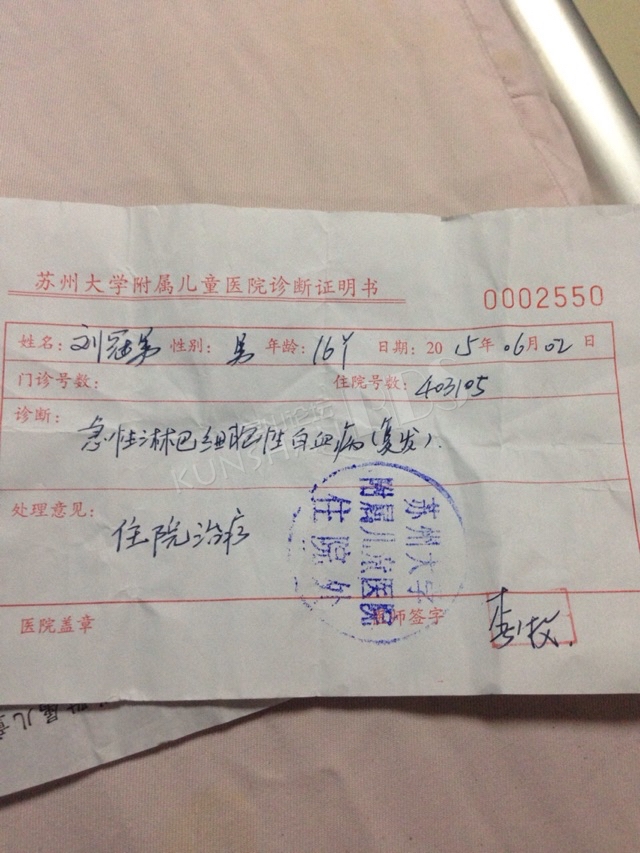 苏州大学附属儿童医院诊断证明书
0002550
姓名: 刘冠第 性别: 男 年龄: 16Y 日期: 2015年06月02日
门诊号数: 住院号数: 403105
诊断:
急性淋巴细胞性白血病(复发).
处理意见:
住院治疗
苏州大学
附属儿童医院
住院处
医院盖章 医师签字